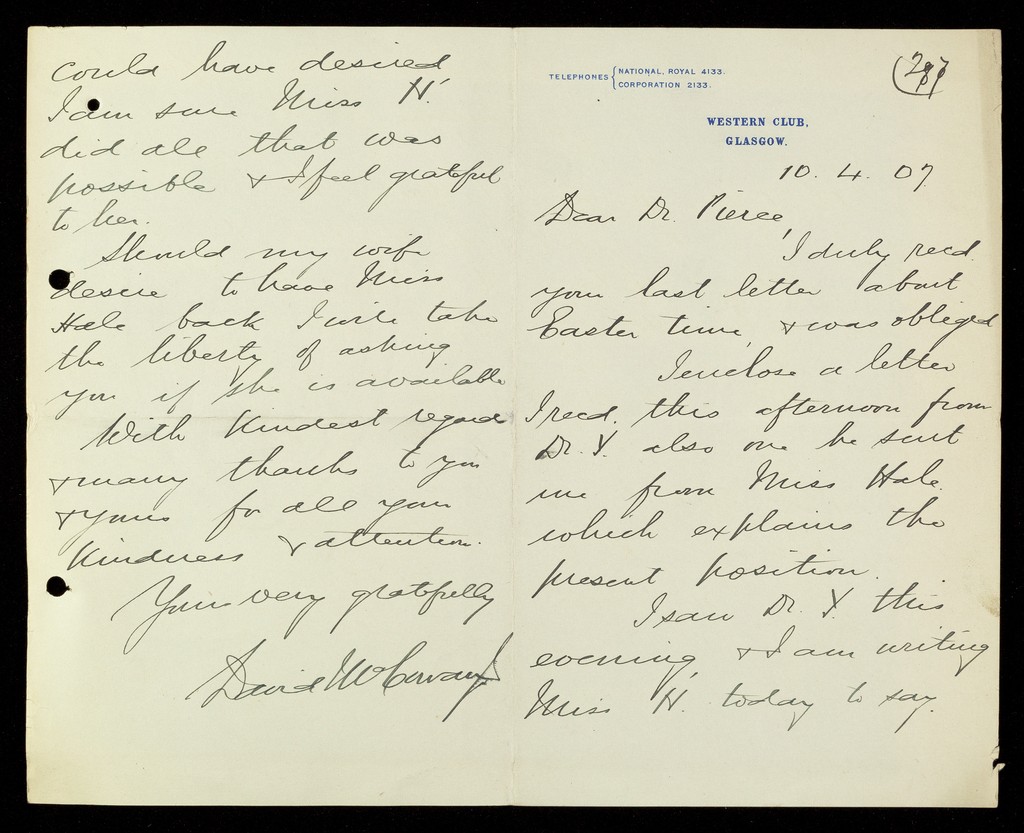 (287
TELEPHONES { NATIONAL, ROYAL 4133.
CORPORATION 2133.
WESTERN CLUB,
GLASGOW.
10. 4. 07
Dear Dr. Pierce,
I duly recd.
your last letter about
Easter time, & was obliged
I enclose a letter
I recd. this afternoon from
Dr. Y. also one he sent
me from Miss Hale
which explains the
present position.
I saw Dr. Y. this
evening, & I am writing
Miss H. today to say.
could have desired
I am sure Miss H.
did all that was
possible & I feel grateful
to her.
Should my wife
desire to have Miss
Hale back I will take
the liberty of asking
you if she is available
With kindest regard
& many thanks to you
& yours for all your
kindness & attention.
Yours very gratefully
David McCowan